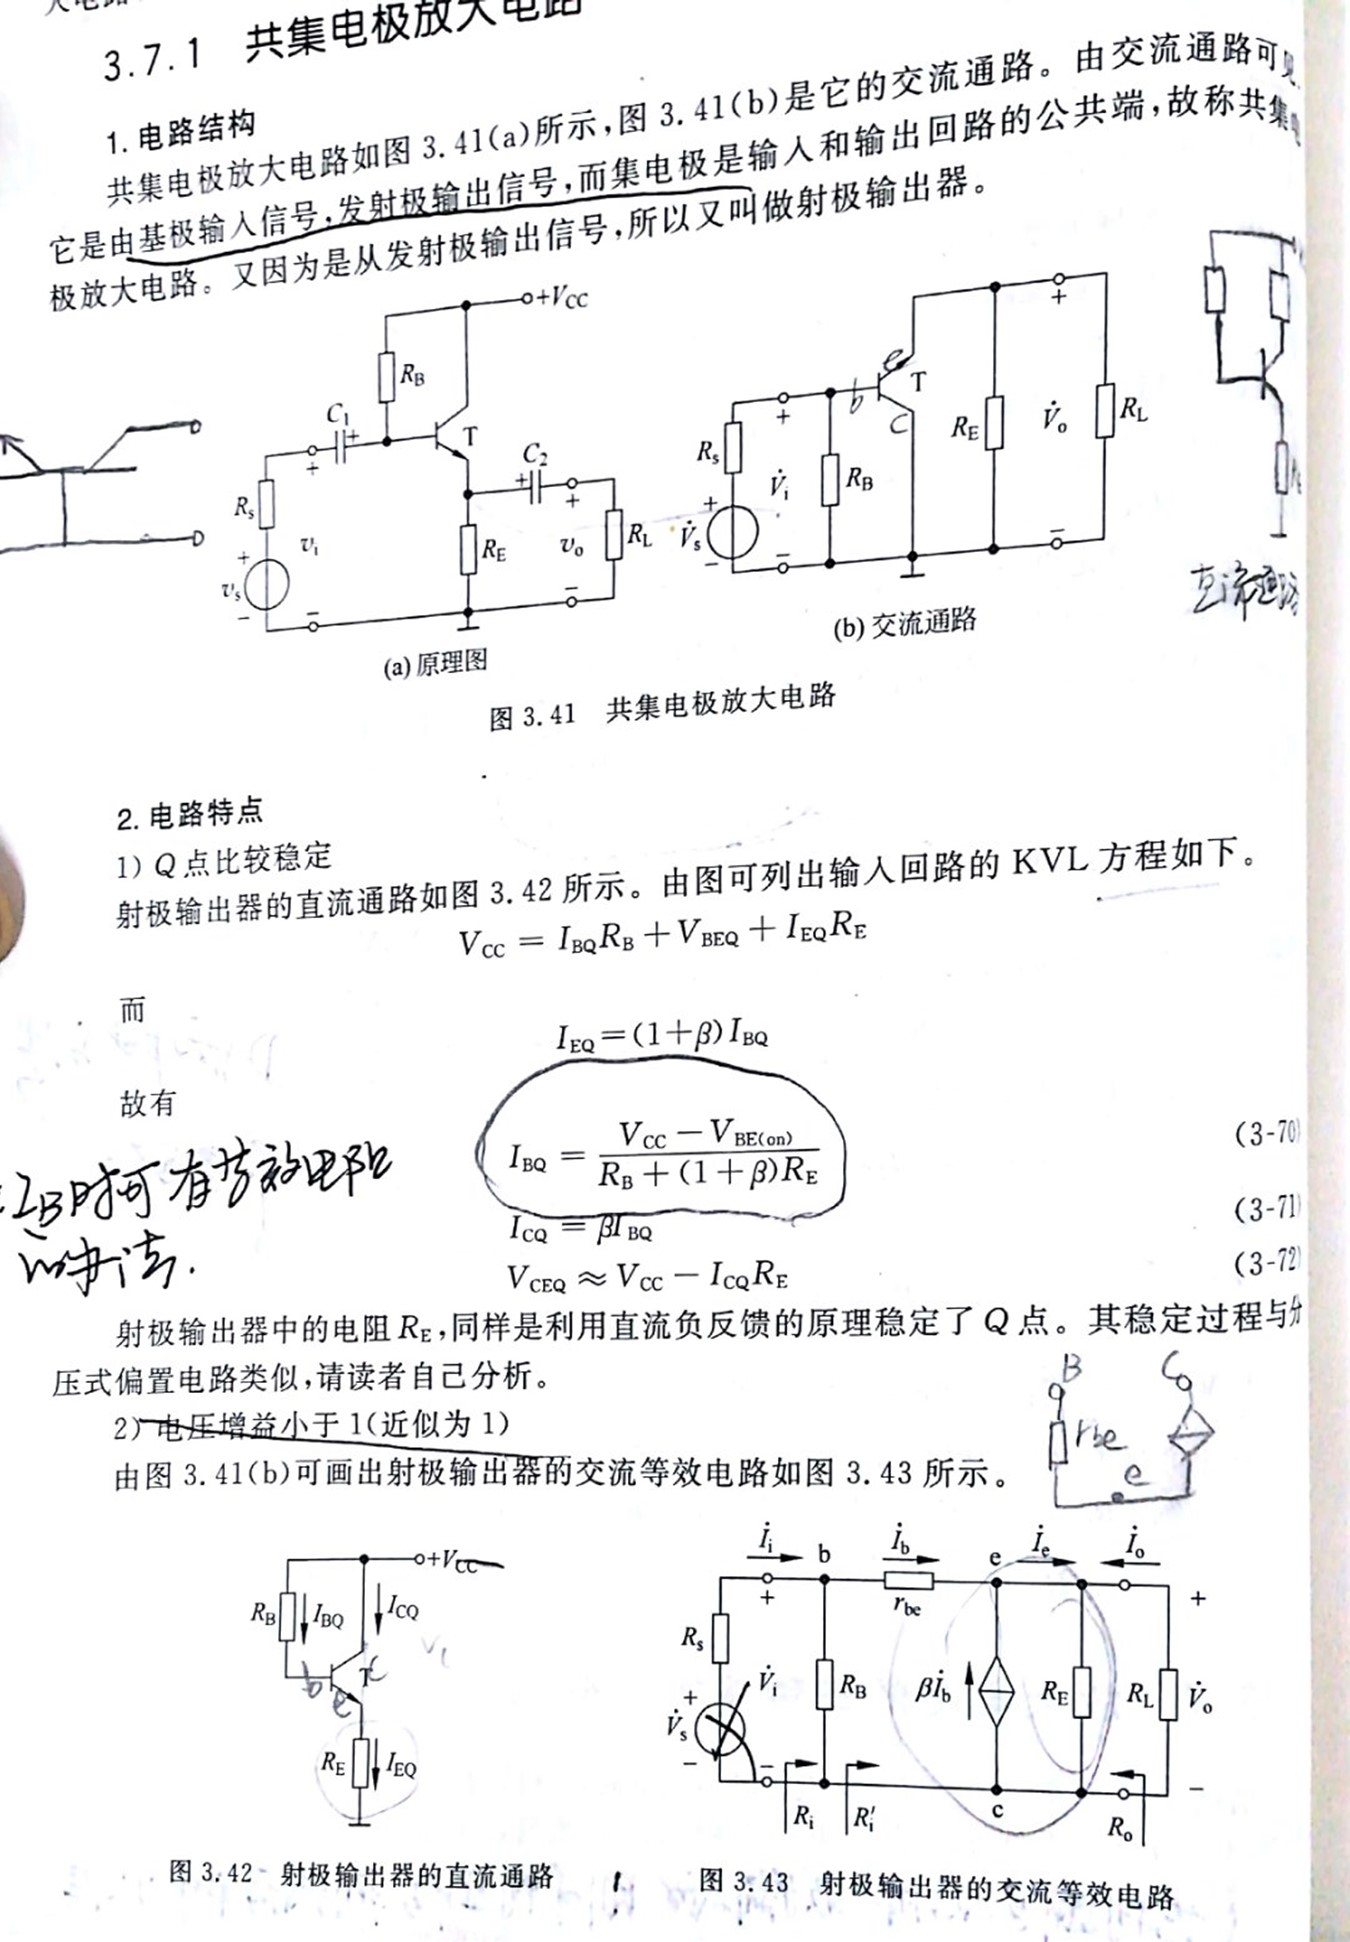 3.7.1 共集电极放大电路
1. 电路结构
共集电极放大电路如图 3.41(a)所示,图 3.41(b)是它的交流通路。由交流通路可见,
它是由基极输入信号,发射极输出信号,而集电极是输入和输出回路的公共端,故称共集电
极放大电路。又因为是从发射极输出信号,所以又叫做射极输出器。
+VCC
RB
C1
+
T
C2
+
Rs
+
vi
+
vs
−
−
RE
+
vo
−
RL
(a) 原理图
e
b
c
T
+
Rs
V̇i
RB
RE
+
V̇o
RL
+
V̇s
−
−
−
(b) 交流通路
直流通路
图 3.41 共集电极放大电路
2. 电路特点
1) Q 点比较稳定
射极输出器的直流通路如图 3.42 所示。由图可列出输入回路的 KVL 方程如下。
VCC = IBQRB + VBEQ + IEQRE
而
IEQ = (1+β) IBQ
故有
IBQ = (VCC − VBE(on)) / (RB + (1+β)RE) (3-70)
ICQ = βIBQ (3-71)
VCEQ ≈ VCC − ICQRE (3-72)
IB时可有等效电阻
的办法.
射极输出器中的电阻 RE,同样是利用直流负反馈的原理稳定了 Q 点。其稳定过程与分
压式偏置电路类似,请读者自己分析。
2) 电压增益小于 1(近似为 1)
由图 3.41(b)可画出射极输出器的交流等效电路如图 3.43 所示。
B
C
rbe
e
+VCC
RB
IBQ
ICQ
b
c
T
e
RE
IEQ
图 3.42 射极输出器的直流通路
İi
b
İb
e
İe
İo
+
rbe
+
Rs
V̇i
RB
βİb
RE
RL
V̇o
+
V̇s
−
−
−
c
Ri
Ri′
Ro
图 3.43 射极输出器的交流等效电路